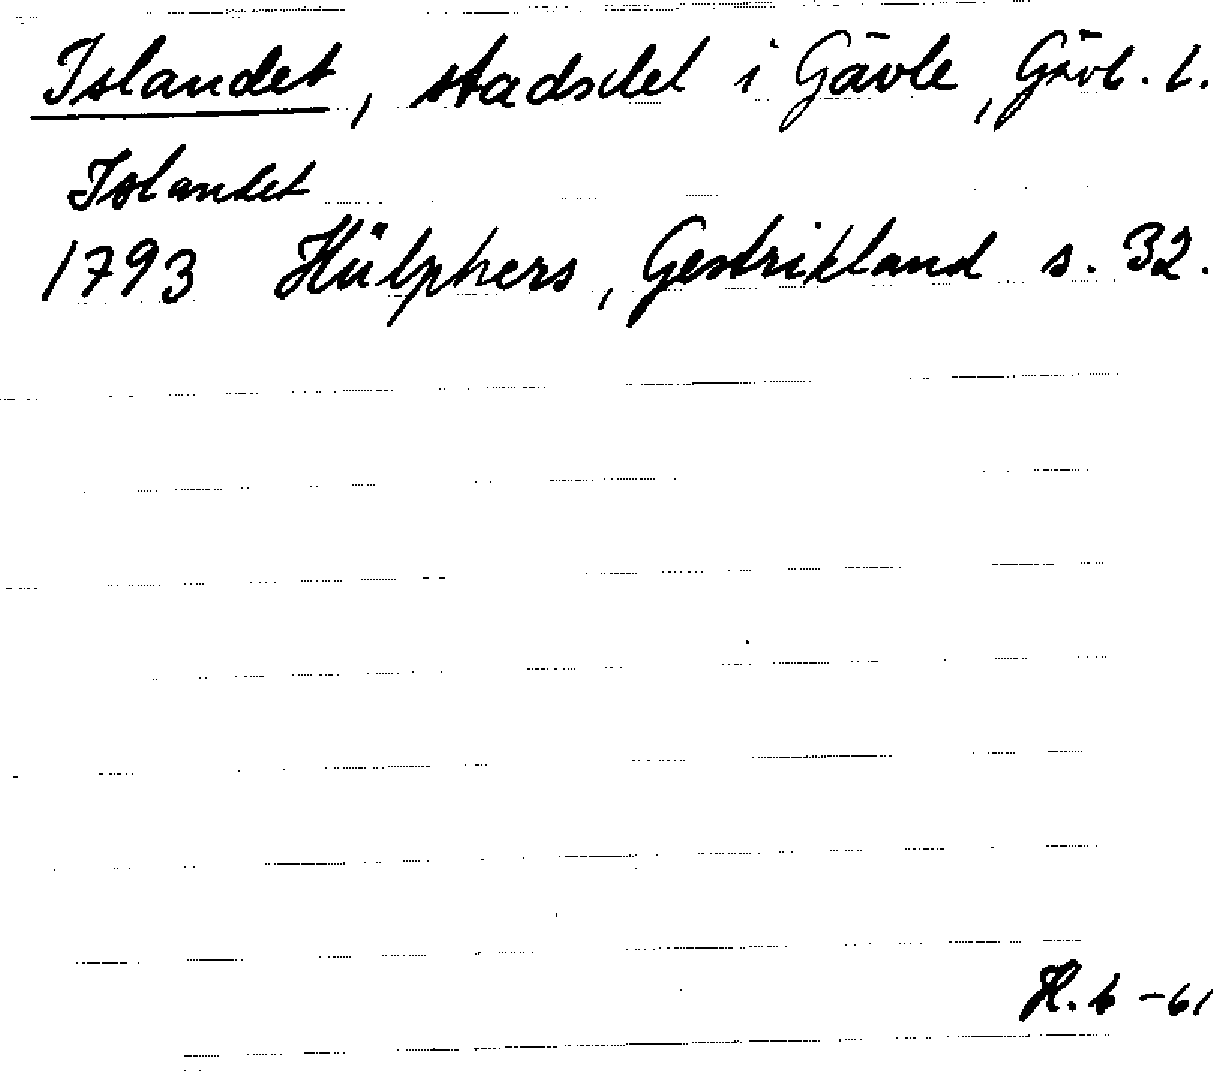 Islandet, stadsdel i Gävle, Gävl. l.
Islandet
1793 Hülphers, Gestrikland s. 32.
H. b -61